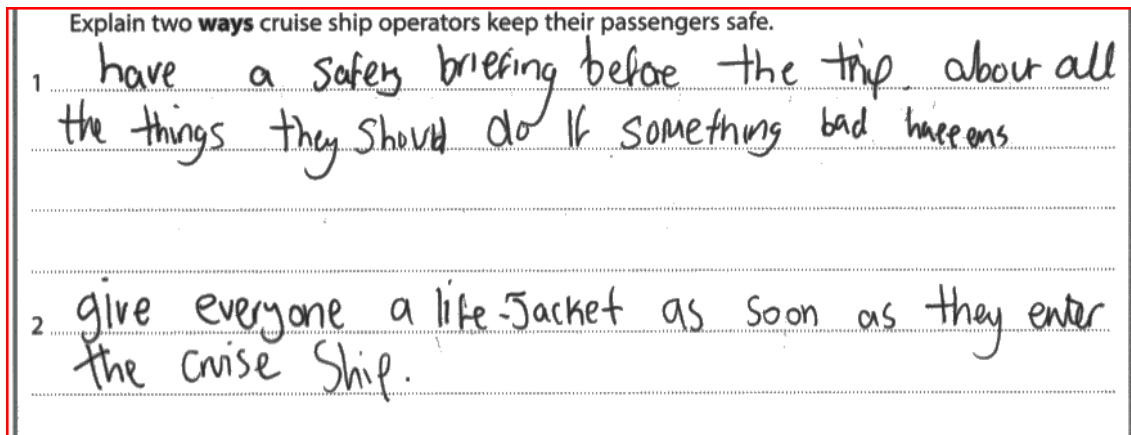 Explain two ways cruise ship operators keep their passengers safe.
1 have a safety briefing before the trip about all
the things they should do if something bad happens
2 give everyone a life-Jacket as soon as they enter
the cruise Ship.